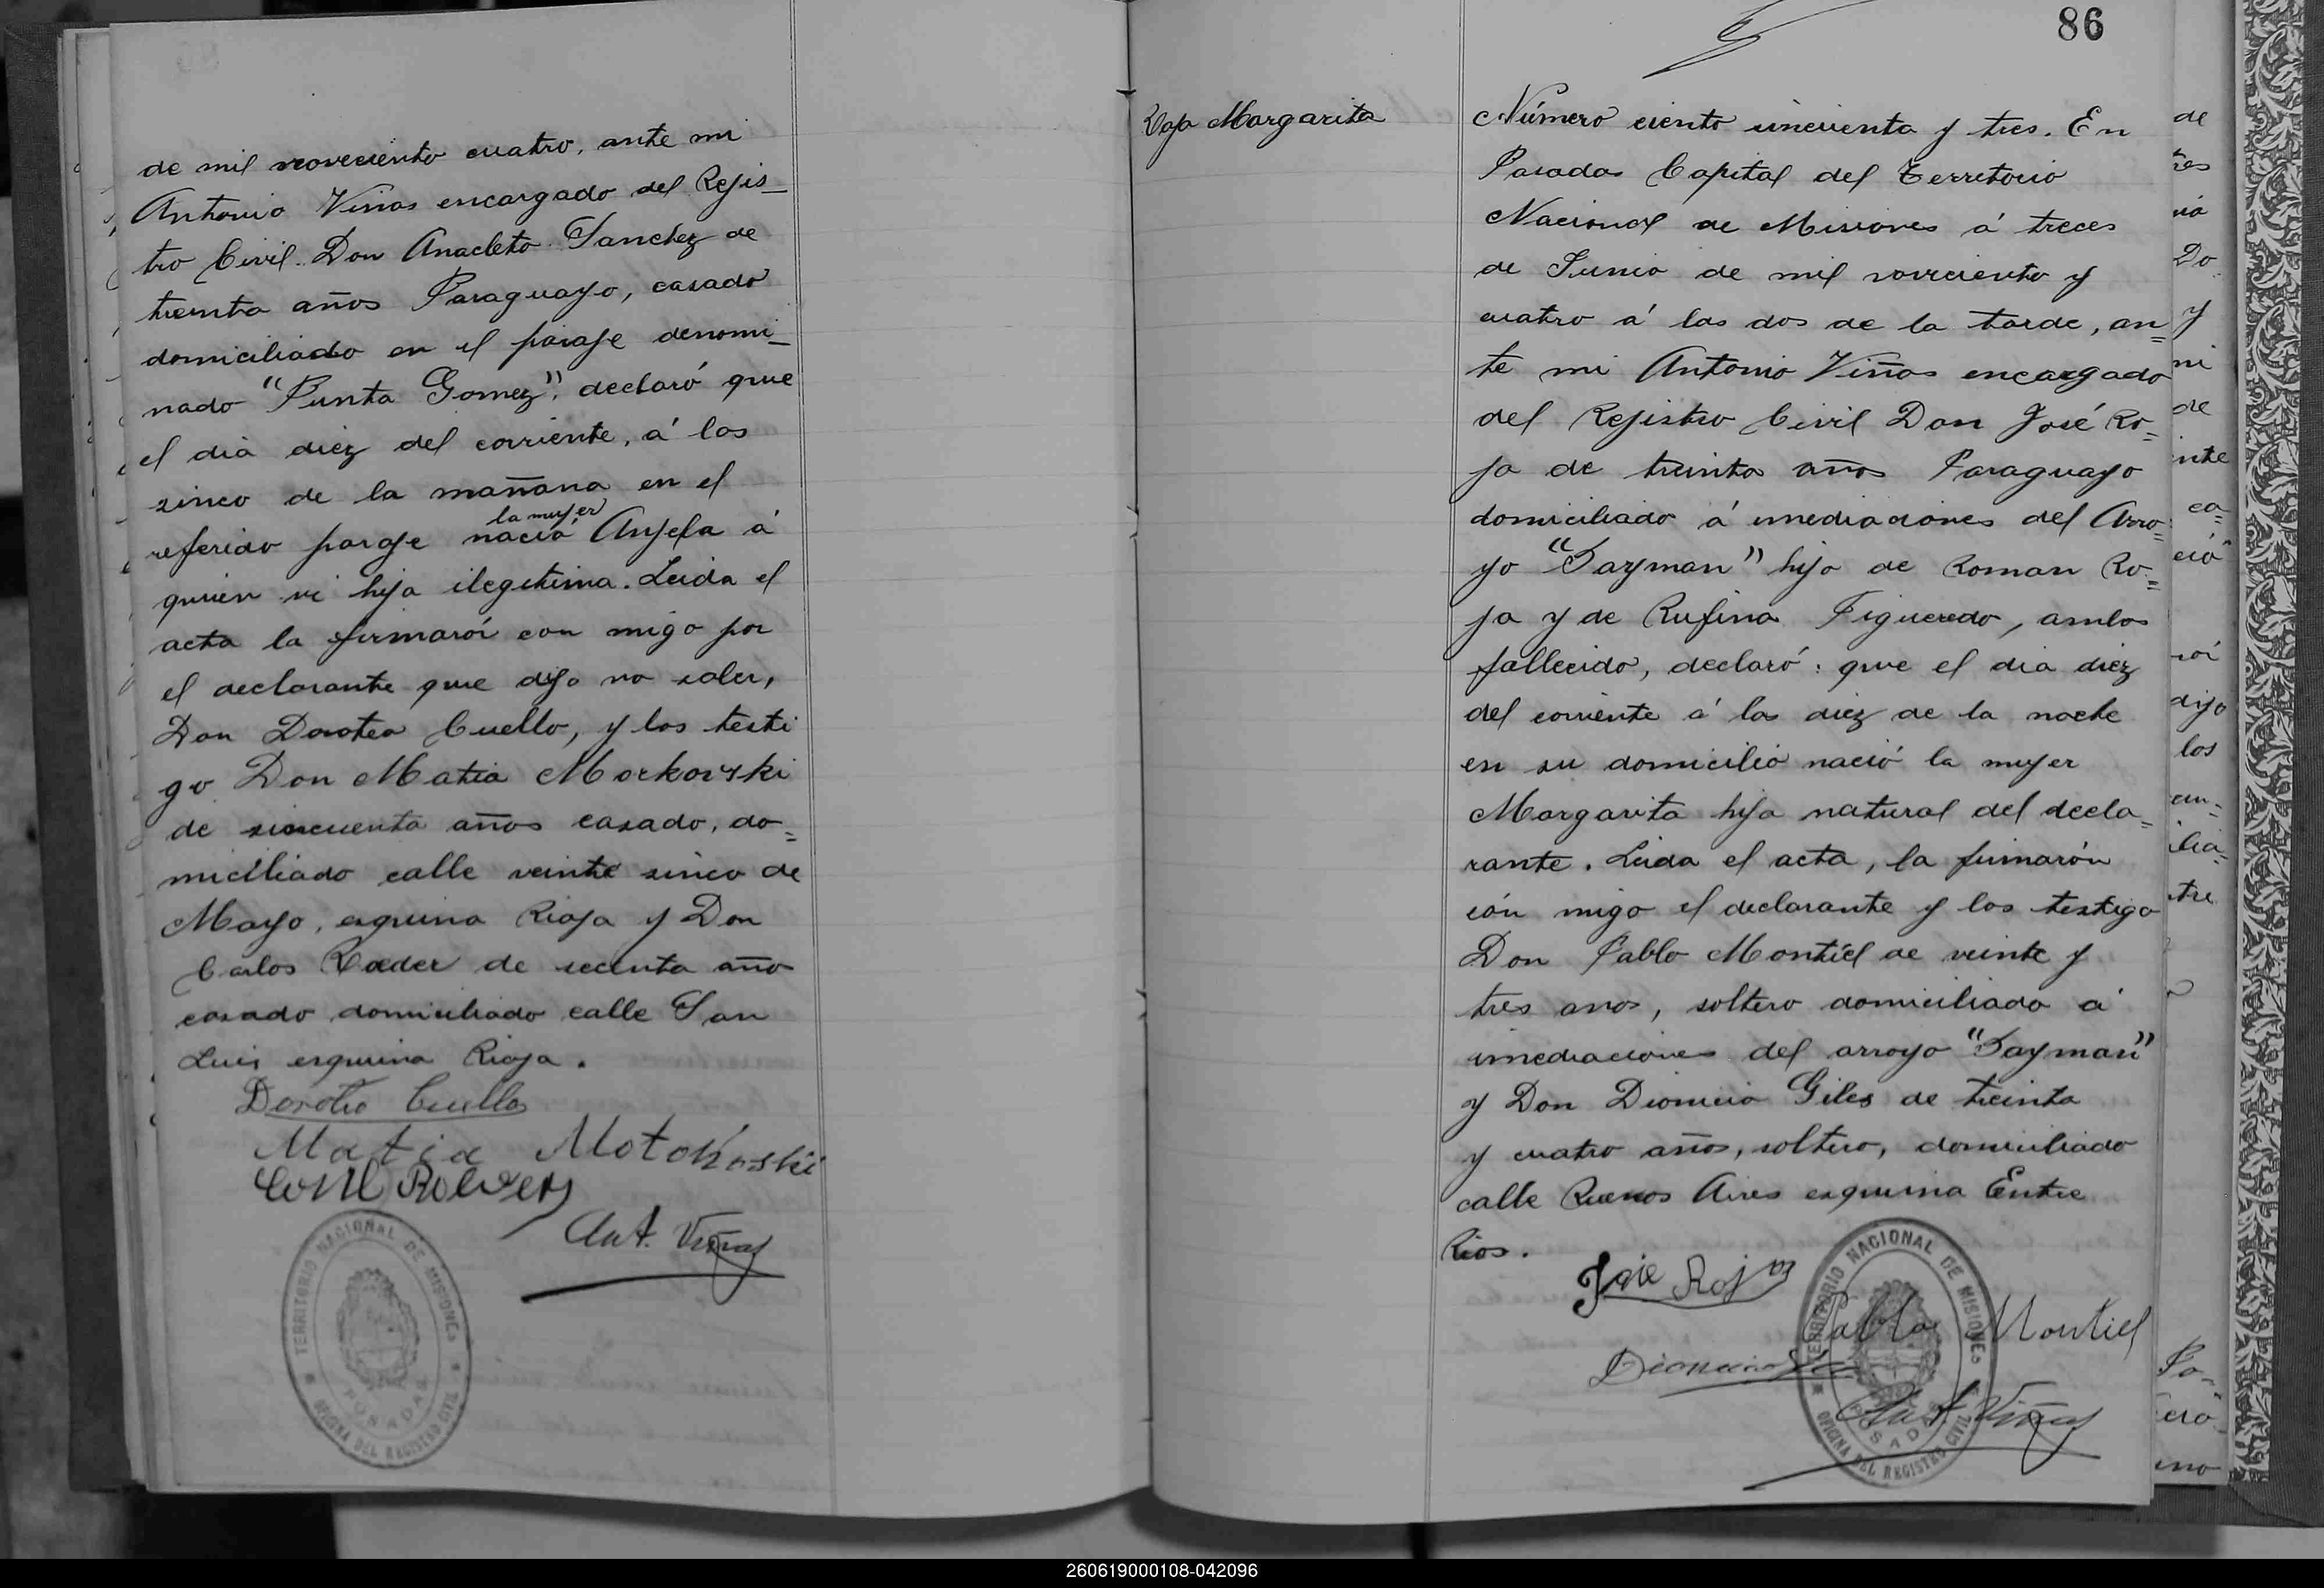 de mil noveciento cuatro, ante mi
Antonio Viñas encargado del Rejis_
tro Civil. Don Anacleto Sanchez de
treinta años Paraguayo, casado
domiciliado en el paraje denomi_
nado "Punta Gomez", declaró que
el dia diez del corriente, á las
sinco de la mañana en el
la mujer
referido paraje nació Anjela á
quien vi hija ilegitima. Leida el
acta la firmarói con migo por
el declarante que dijo no saber,
Don Dorotea Cuello, y los testi
go Don Matia Morkovski
de sincuenta años casado, do=
miciliado calle veinte sinco de
Mayo, esquina Rioja y Don
Carlos Roeder de secenta año
casado domiciliado calle San
Luis esquina Rioja.
Doroteo Cuello
Matia Motokoski
Ant. Viñas
TERRITORIO NACIONAL DE MISIONES
POSADAS
OFICINA DEL REGISTRO CIVIL
86
Roja Margarita
Número ciento cincuenta y tres. En
Posadas Capital del Territorio
Nacional de Misiones á treces
de Junio de mil noveciento y
cuatro á las dos de la tarde, an=
te mi Antonio Viñas encargado
del Rejistro Civil Don José Ro=
ja de treinta años Paraguayo
domiciliado á imediaciones del Arro=
yo "Zayman" hijo de Roman Ro=
ja y de Rufina Figueredo, ambos
fallecido, declaró: que el dia diez
del corriente á las diez de la noche
en su domicilio nació la mujer
Margarita hija natural del decla=
rante. Leida el acta, la firmarón
cón migo el declarante y los testigo
Don Pablo Montiel de veinte y
tres anos, soltero domiciliado á
imediaciones del arroyo "Zayman"
y Don Dionicio Giles de treinta
y cuatro años, soltero, domiciliado
calle Buenos Aires esquina Entre
Rios.
José Rojas
Pablo Montiel
Dionicio
Ant Viñas
TERRITORIO NACIONAL DE MISIONES
POSADAS
OFICINA DEL REGISTRO CIVIL
260619000108-042096